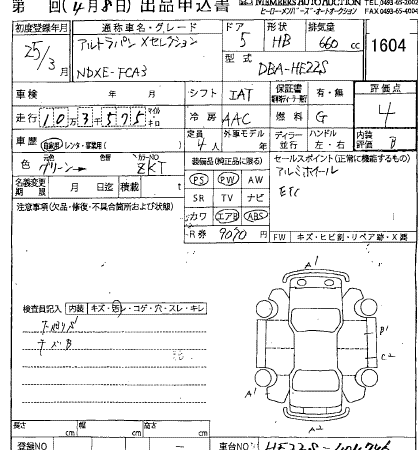 第 回(4月8日) 出品申込書 MEMBERS AUTO AUCTION TEL.0493-65-2002
ヒーローメンバーズ・オートオークション FAX.0493-65-0004
初度登録年月 通称車名・グレード ドア 形状 排気量
25/3月 アルトラパン Xセレクション 5 HB 660 cc 1604
NDXE-FCA3 型式 DBA-HE22S
車検 年 月 シフト IAT 保証書 有・無 評価点
走行 10万3千575 マイル キロ 冷房 AAC 燃料 G 4
車歴 自家用 レンタ・営業用( ) 定員 4人 外車モデル 年 ディーラー 並行 ハンドル 左・右 内装 B
色 元色 グリーン→ 色替 カラーNO ZKT 装備品(純正品に限る) セールスポイント(正常に機能するもの)
名義変更期限 月 日迄 積載 t PS PW AW アルミホイール
注意事項(欠品・修復・不具合箇所および状態) SR TV ナビ ETC
カワ エアB ABS
R券 9070円 FW キズ・ヒビ割・リペア跡・X測
検査員記入 内装 キズ・汚レ・コゲ・穴・スレ・キレ
A1
B1
C2
A2
長さ cm 幅 cm 高さ cm
登録NO 車台NO HE22S-